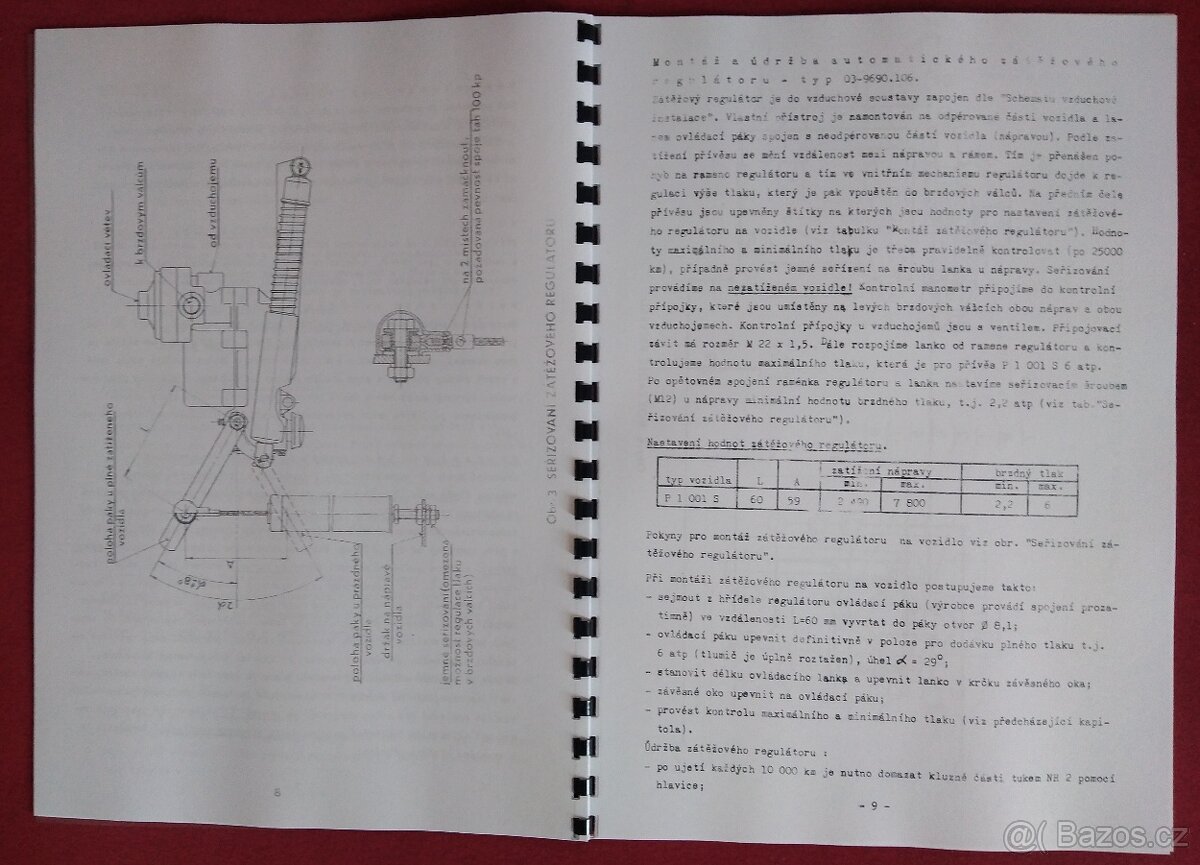 ovládací větev
k brzdovým válcům
od vzduchojemu
na 2 místech zamáčknout
požadovaná pevnost spoje tah 100 kp
poloha páky u plně zatíženého
vozidla
poloha páky u prázdného
vozidla
držák na nápravě
vozidla
jemné seřizování (omezená
možnost regulace tlaku
v brzdových válcích)
Obr. 3 SEŘIZOVÁNÍ ZÁTĚŽOVÉHO REGULÁTORU
8
Montáž a údržba automatického zátěžového
regulátoru - typ 03-9690.106.
Zátěžový regulátor je do vzduchové soustavy zapojen dle "Schematu vzduchové
instalace". Vlastní přístroj je namontován na odpérované části vozidla a la-
nem ovládací páky spojen s neodpérovanou částí vozidla (nápravou). Podle za-
tížení přívěsu se mění vzdálenost mezi nápravou a rámem. Tím je přenášen po-
hyb na rameno regulátoru a tím ve vnitřním mechanismu regulátoru dojde k re-
gulaci výše tlaku, který je pak vpouštěn do brzdových válců. Na předním čele
přívěsu jsou upevněny štítky na kterých jsou hodnoty pro nastavení zátěžové-
ho regulátoru na vozidle (viz tabulku "Montáž zátěžového regulátoru"). Hodno-
ty maximálního a minimálního tlaku je třeba pravidelně kontrolovat (po 25000
km), případně provést jemné seřízení na šroubu lanka u nápravy. Seřizování
provádíme na nezatíženém vozidle! Kontrolní manometr připojíme do kontrolní
přípojky, které jsou umístěny na levých brzdových válcích obou náprav a obou
vzduchojemech. Kontrolní přípojky u vzduchojemů jsou s ventilem. Připojovací
závit má rozměr M 22 x 1,5. Dále rozpojíme lanko od ramene regulátoru a kon-
trolujeme hodnotu maximálního tlaku, která je pro přívěs P 1 001 S 6 atp.
Po opětovném spojení raménka regulátoru a lanka nastavíme seřizovacím šroubem
(M12) u nápravy minimální hodnotu brzdného tlaku, t.j. 2,2 atp (viz tab."Se-
řizování zátěžového regulátoru").
Nastavení hodnot zátěžového regulátoru.
typ vozidla L A zatížení nápravy brzdný tlak
min. max. min. max.
P 1 001 S 60 59 7 800 2,2 6
Pokyny pro montáž zátěžového regulátoru na vozidlo viz obr. "Seřizování zá-
těžového regulátoru".
Při montáži zátěžového regulátoru na vozidlo postupujeme takto:
- sejmout z hřídele regulátoru ovládací páku (výrobce provádí spojení proza-
tímně) ve vzdálenosti L=60 mm vyvrtat do páky otvor Ø 8,1;
- ovládací páku upevnit definitivně v poloze pro dodávku plného tlaku t.j.
6 atp (tlumič je úplně roztažen), úhel α = 29°;
- stanovit délku ovládacího lanka a upevnit lanko v krčku závěsného oka;
- závěsné oko upevnit na ovládací páku;
- provést kontrolu maximálního a minimálního tlaku (viz předcházející kapi-
tola).
Údržba zátěžového regulátoru :
- po ujetí každých 10 000 km je nutno domazat kluzné části tukem NH 2 pomocí
hlavice;
- 9 -
@( Bazos.cz